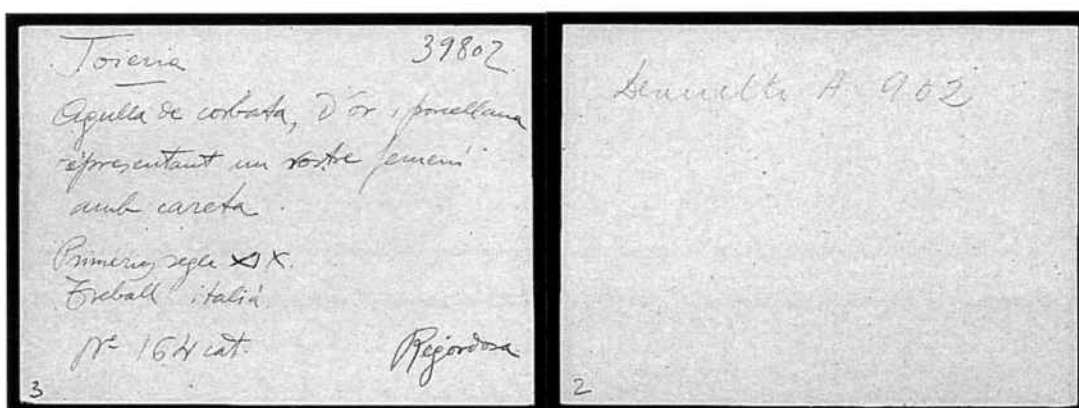 Joieria 39802
Agulla de corbata, D'or i porcellana
representant un rostre femení
amb careta.
Primeries segle XIX.
Treball italià
Nº 164 cat. Regordosa
3
A. 902
2